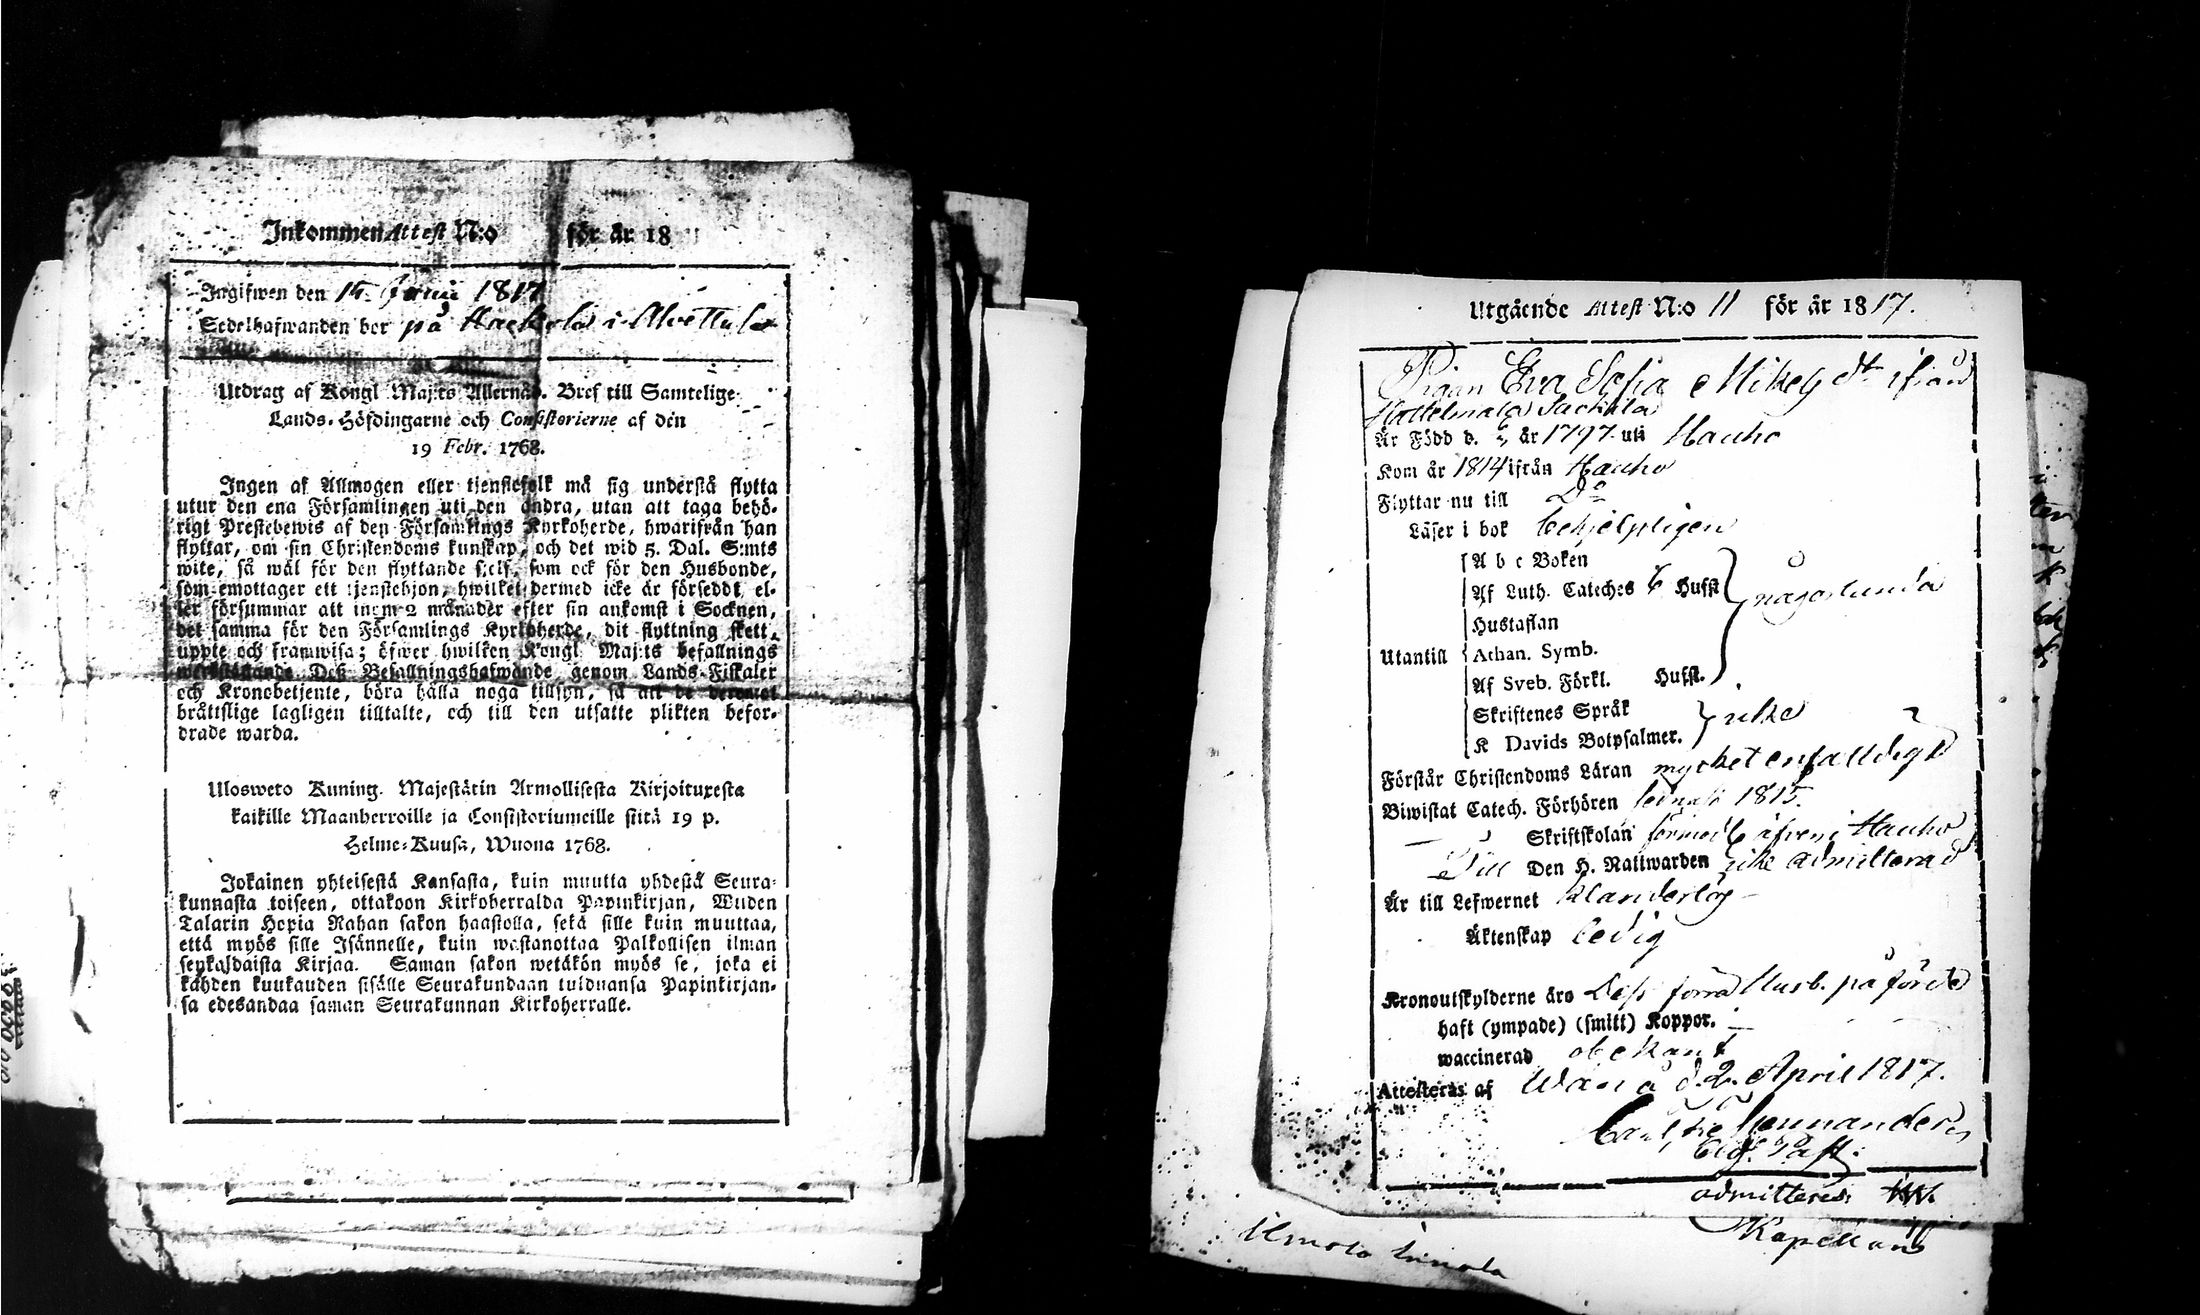 Inkommen Attest N:o för år 18
Ingifwen den 15. Junii 1817
Sedelhafwanden bor på Hackola i Alvettula
Utdrag af Kongl Maj:ts Allernåd. Bref till Samtelige
Lands-Höfdingarne och Consistorierne af den
19 Febr. 1768.
Ingen af Allmogen eller tjenstefolk må sig understå flytta
utur den ena Församlingen uti den andra, utan att taga behö-
rigt Prestebewis af den Församlings Kyrkoherde, hwarifrån han
flyttar, om sin Christendoms kunskap, och det wid 5. Dal. S:mts
wite, så wäl för den flyttande sjelf, som ock för den Husbonde,
som emottager ett tjenstehjon, hwilket dermed icke är försedd, el-
ler försummar att inom 2 månader efter sin ankomst i Socknen,
det samma för den Församlings Kyrkoherde, dit flyttning skett,
uppte och framwisa; öfwer hwilken Kongl Maj:ts befallnings
werkställande Deß Befallningshafwande genom Lands-Fiskaler
och Kronobetjente, böra hålla noga tillsyn, så att de deremot
bråttslige lagligen tilltalte, och till den utsatte plikten befor-
drade warda.
Ulosweto Kuning. Majestätin Armollisesta Kirjoituxesta
kaikille Maanherroille ja Consistoriumeille siitä 19 p.
Helme-Kuusa, Wuona 1768.
Jokainen yhteisestä Kansasta, kuin muutta yhdestä Seura-
kunnasta toiseen, ottakoon Kirkoherralda Papinkirjan, Wiiden
Talarin Hopia Rahan sakon haastolla, sekä sille kuin muuttaa,
että myös sille Isännelle, kuin wastanottaa Palkollisen ilman
senkaldaista Kirjaa. Saman sakon wetäkön myös se, joka ei
kahden kuukauden sisälle Seurakundaan tulduansa Papinkirjan-
sa edesandaa saman Seurakunnan Kirkoherralle.
Utgående Attest N:o 11 för år 1817.
Pigan Eva Sofia Mikels dtr ifrån
Hottelmala
Är Född d. år 1797 uti Hauho
Kom år 1814 ifrån Hauho
Flyttar nu till Do
Läser i bok behjelpligen
A b c Boken
Af Luth. Cateches 6 Hufst någorlunda
Hustaflan
Utantill Athan. Symb.
Af Sveb. Förkl. Hufst.
Skriftenes Språk icke
K Davids Botpsalmer.
Förstår Christendoms Läran mycket enfalldigt
Biwistat Catech. Förhören sednast 1815.
Skriftskolan äfven i Hauho
Till Den H. Nattwarden icke admitterad
Är till Lefwernet klanderlös
Äktenskap ledig
Kronoutskylderne äro Dess förra Husb. påförde
haft (ympade) (smitt) Koppor. —
waccinerad obekant
Attesteras af Wånå d. 2. April 1817.
Past.
admitteres
Kapellans